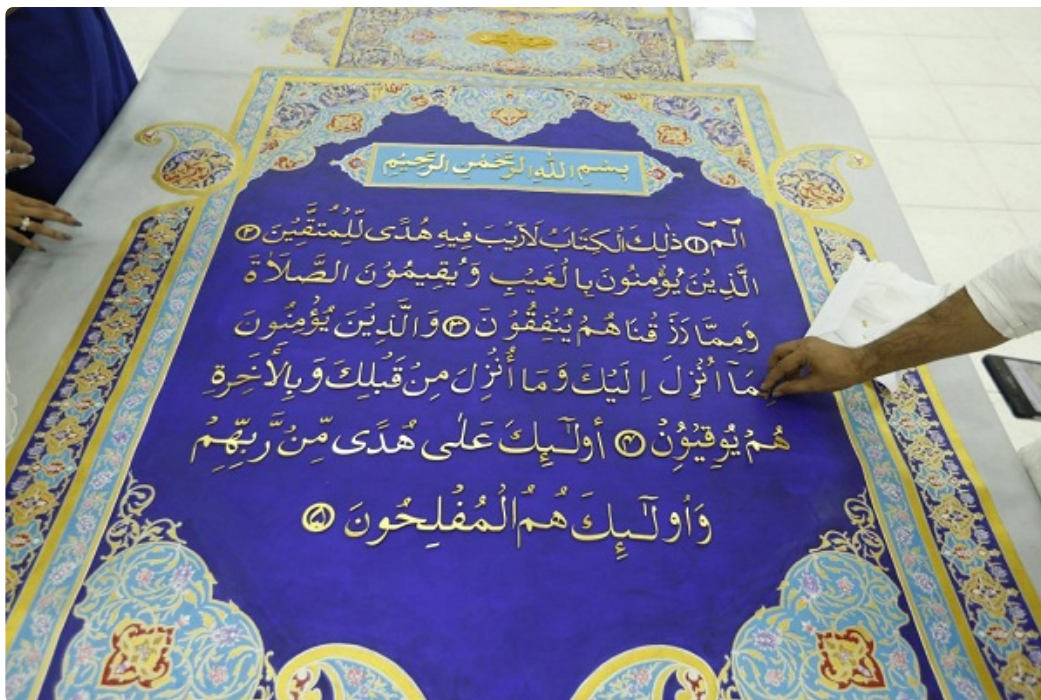 بِسْمِ اللهِ الرَّحْمٰنِ الرَّحِيْمِ
الٓمّٓ ۝١ ذٰلِكَ الْكِتَابُ لَارَيْبَ فِيهِ هُدًى لِّلْمُتَّقِيْنَ ۝٢
الَّذِيْنَ يُؤْمِنُونَ بِالْغَيْبِ وَيُقِيمُوْنَ الصَّلَاةَ
وَمِمَّا رَزَقْنَا هُمْ يُنْفِقُوْنَ ۝٣ وَالَّذِيْنَ يُؤْمِنُونَ
بِمَآ اُنْزِلَ اِلَيْكَ وَمَا أُنْزِلَ مِنْ قَبْلِكَ وَبِالْأَخِرةِ
هُمْ يُوقِنُوْنَ ۝٤ أُولٰٓئِكَ عَلٰى هُدًى مِّنْ رَّبِّهِمْ
وَاُولٰٓئِكَ هُمُ الْمُفْلِحُونَ ۝٥